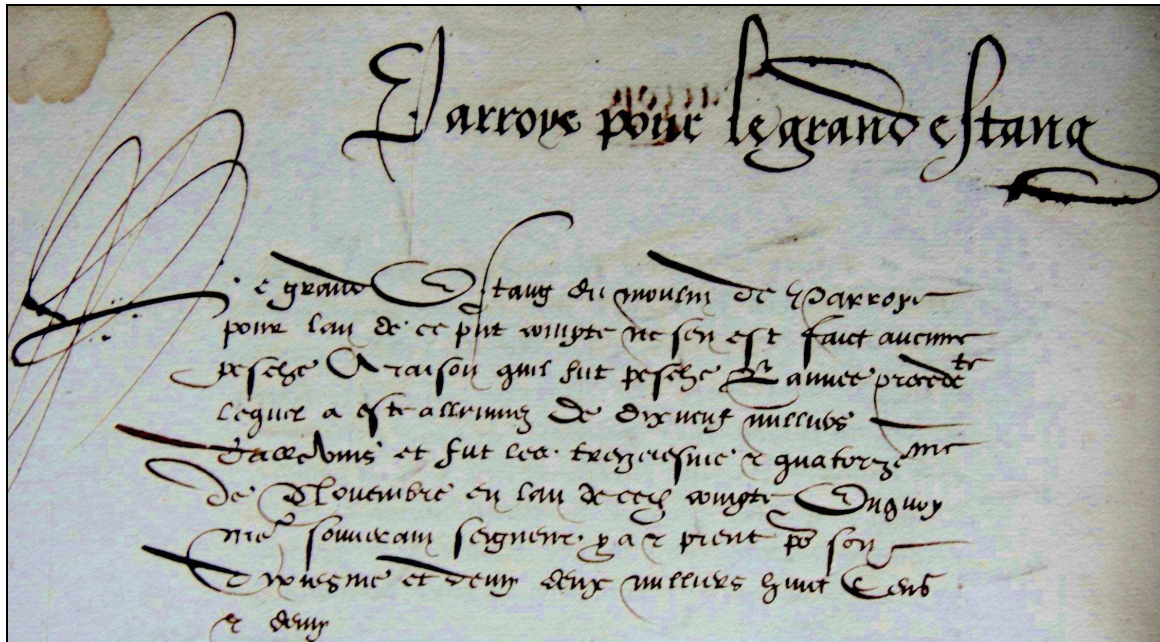 Parroye pour le grand estang
Le grand Estang du moulin de Parroye
pour lan de ce pnt compte ne sen est faict aucune
pesche A raison quil fut pesche Lannee precedte
lequel a este allevine de dix neuf milliers
dallevins et fut les treziesme et quatorzeme
de Novembre en lan de cest compte Enquoy
souverain seigneur y a et prent po son
dixiesme et demy deux milliers huict Cens
et demy